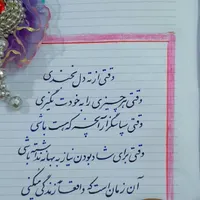 وقتی از ته دل بخندی
وقتی هر چیزی را به خودت نگیری
وقتی سپاسگزار آنچه که هست باشی
وقتی برای شاد بودن نیاز به بهانه نداشته باشی
آن زمان است که واقعا زندگی میکنی